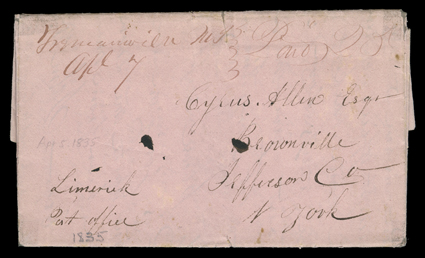 Paid 25
Apl 7
Cyrus Allen Esqr
Apr 5 1835
Brownville
Jefferson Co
Limerick
N York
Post office
1835